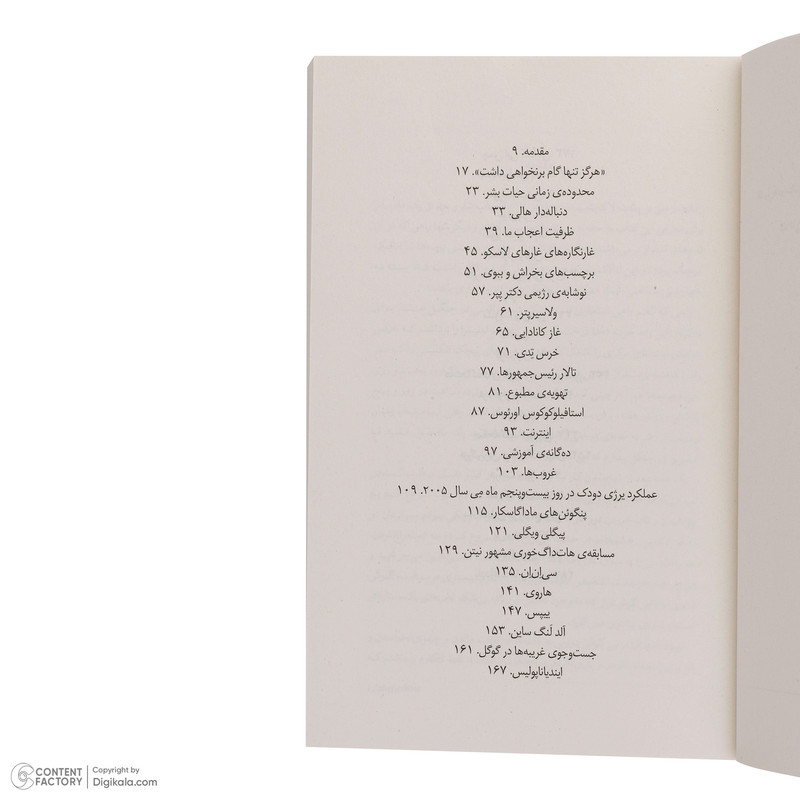 مقدمه. ۹
«هرگز تنها گام برنخواهی داشت». ۱۷
محدوده‌ی زمانی حیات بشر. ۲۳
دنباله‌دار هالی. ۳۳
ظرفیت اعجاب ما. ۳۹
غارنگاره‌های غارهای لاسکو. ۴۵
برچسب‌های بخراش و ببوی. ۵۱
نوشابه‌ی رژیمی دکتر پپر. ۵۷
ولاسیرپتر. ۶۱
غاز کانادایی. ۶۵
خرس تِدی. ۷۱
تالار رئیس‌جمهورها. ۷۷
تهویه‌ی مطبوع. ۸۱
استافیلوکوکوس اورئوس. ۸۷
اینترنت. ۹۳
ده‌گانه‌ی آموزشی. ۹۷
غروب‌ها. ۱۰۳
عملکرد یرژی دودک در روز بیست‌وپنجم ماه مِی سال ۲۰۰۵. ۱۰۹
پنگوئن‌های ماداگاسکار. ۱۱۵
پیگلی ویگلی. ۱۲۱
مسابقه‌ی هات‌داگ‌خوری مشهور نیتن. ۱۲۹
سی‌ان‌ان. ۱۳۵
هاروی. ۱۴۱
ییپس. ۱۴۷
اَلد لَنگ ساین. ۱۵۳
جست‌وجوی غریبه‌ها در گوگل. ۱۶۱
ایندیاناپولیس. ۱۶۷
CONTENT FACTORY
Copyright by
Digikala.com